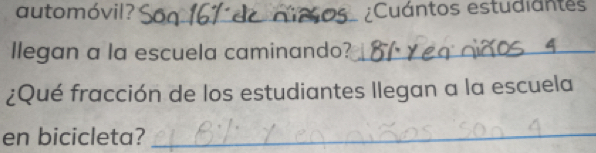 automóvil? Son 16% de niños ¿Cuántos estudiantes
llegan a la escuela caminando? 8% y en niños 4
¿Qué fracción de los estudiantes llegan a la escuela
en bicicleta? el 8% y en niños son 4